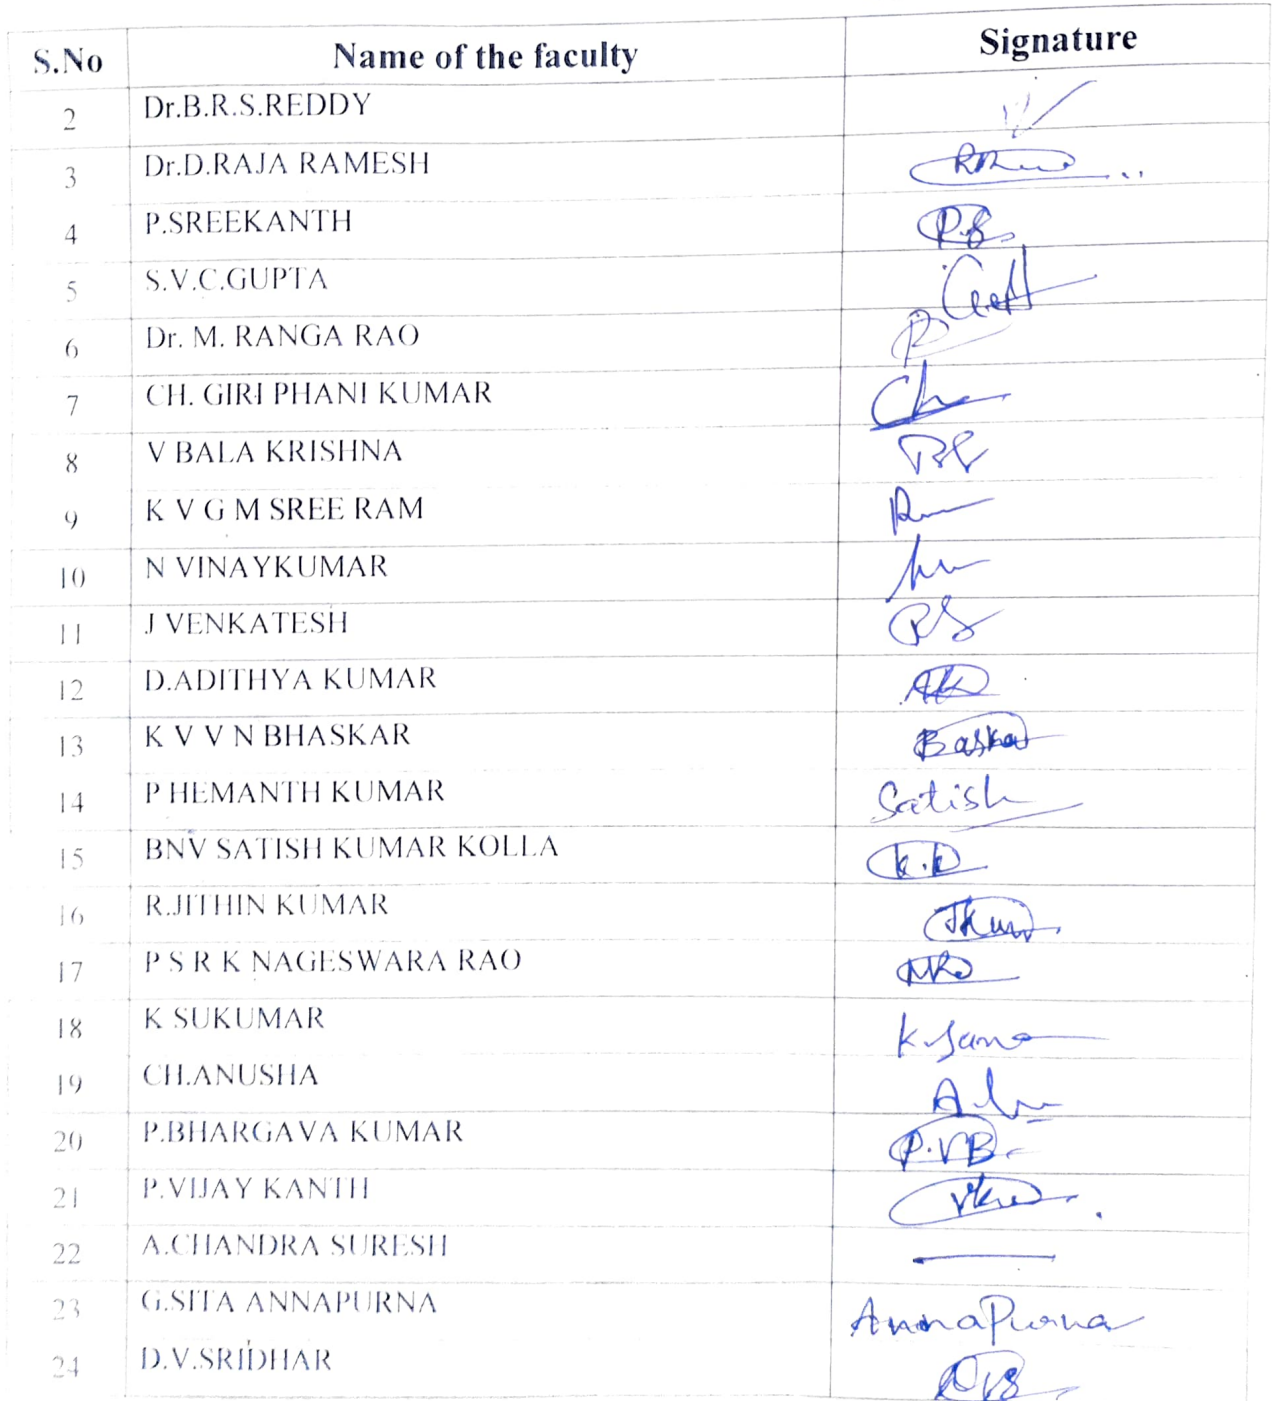 S.No Name of the faculty Signature
2 Dr.B.R.S.REDDY
3 Dr.D.RAJA RAMESH
4 P.SREEKANTH P.S
5 S.V.C.GUPTA
6 Dr. M. RANGA RAO
7 CH. GIRI PHANI KUMAR
8 V BALA KRISHNA
9 K V G M SREE RAM
10 N VINAYKUMAR
11 J VENKATESH
12 D.ADITHYA KUMAR
13 K V V N BHASKAR Baskar
14 P HEMANTH KUMAR Satish
15 BNV SATISH KUMAR KOLLA K.K
16 R.JITHIN KUMAR
17 P S R K NAGESWARA RAO
18 K SUKUMAR
19 CH.ANUSHA
20 P.BHARGAVA KUMAR P.VB
21 P.VIJAY KANTH
22 A.CHANDRA SURESH
23 G.SITA ANNAPURNA AnnaPurna
24 D.V.SRIDHAR DVS